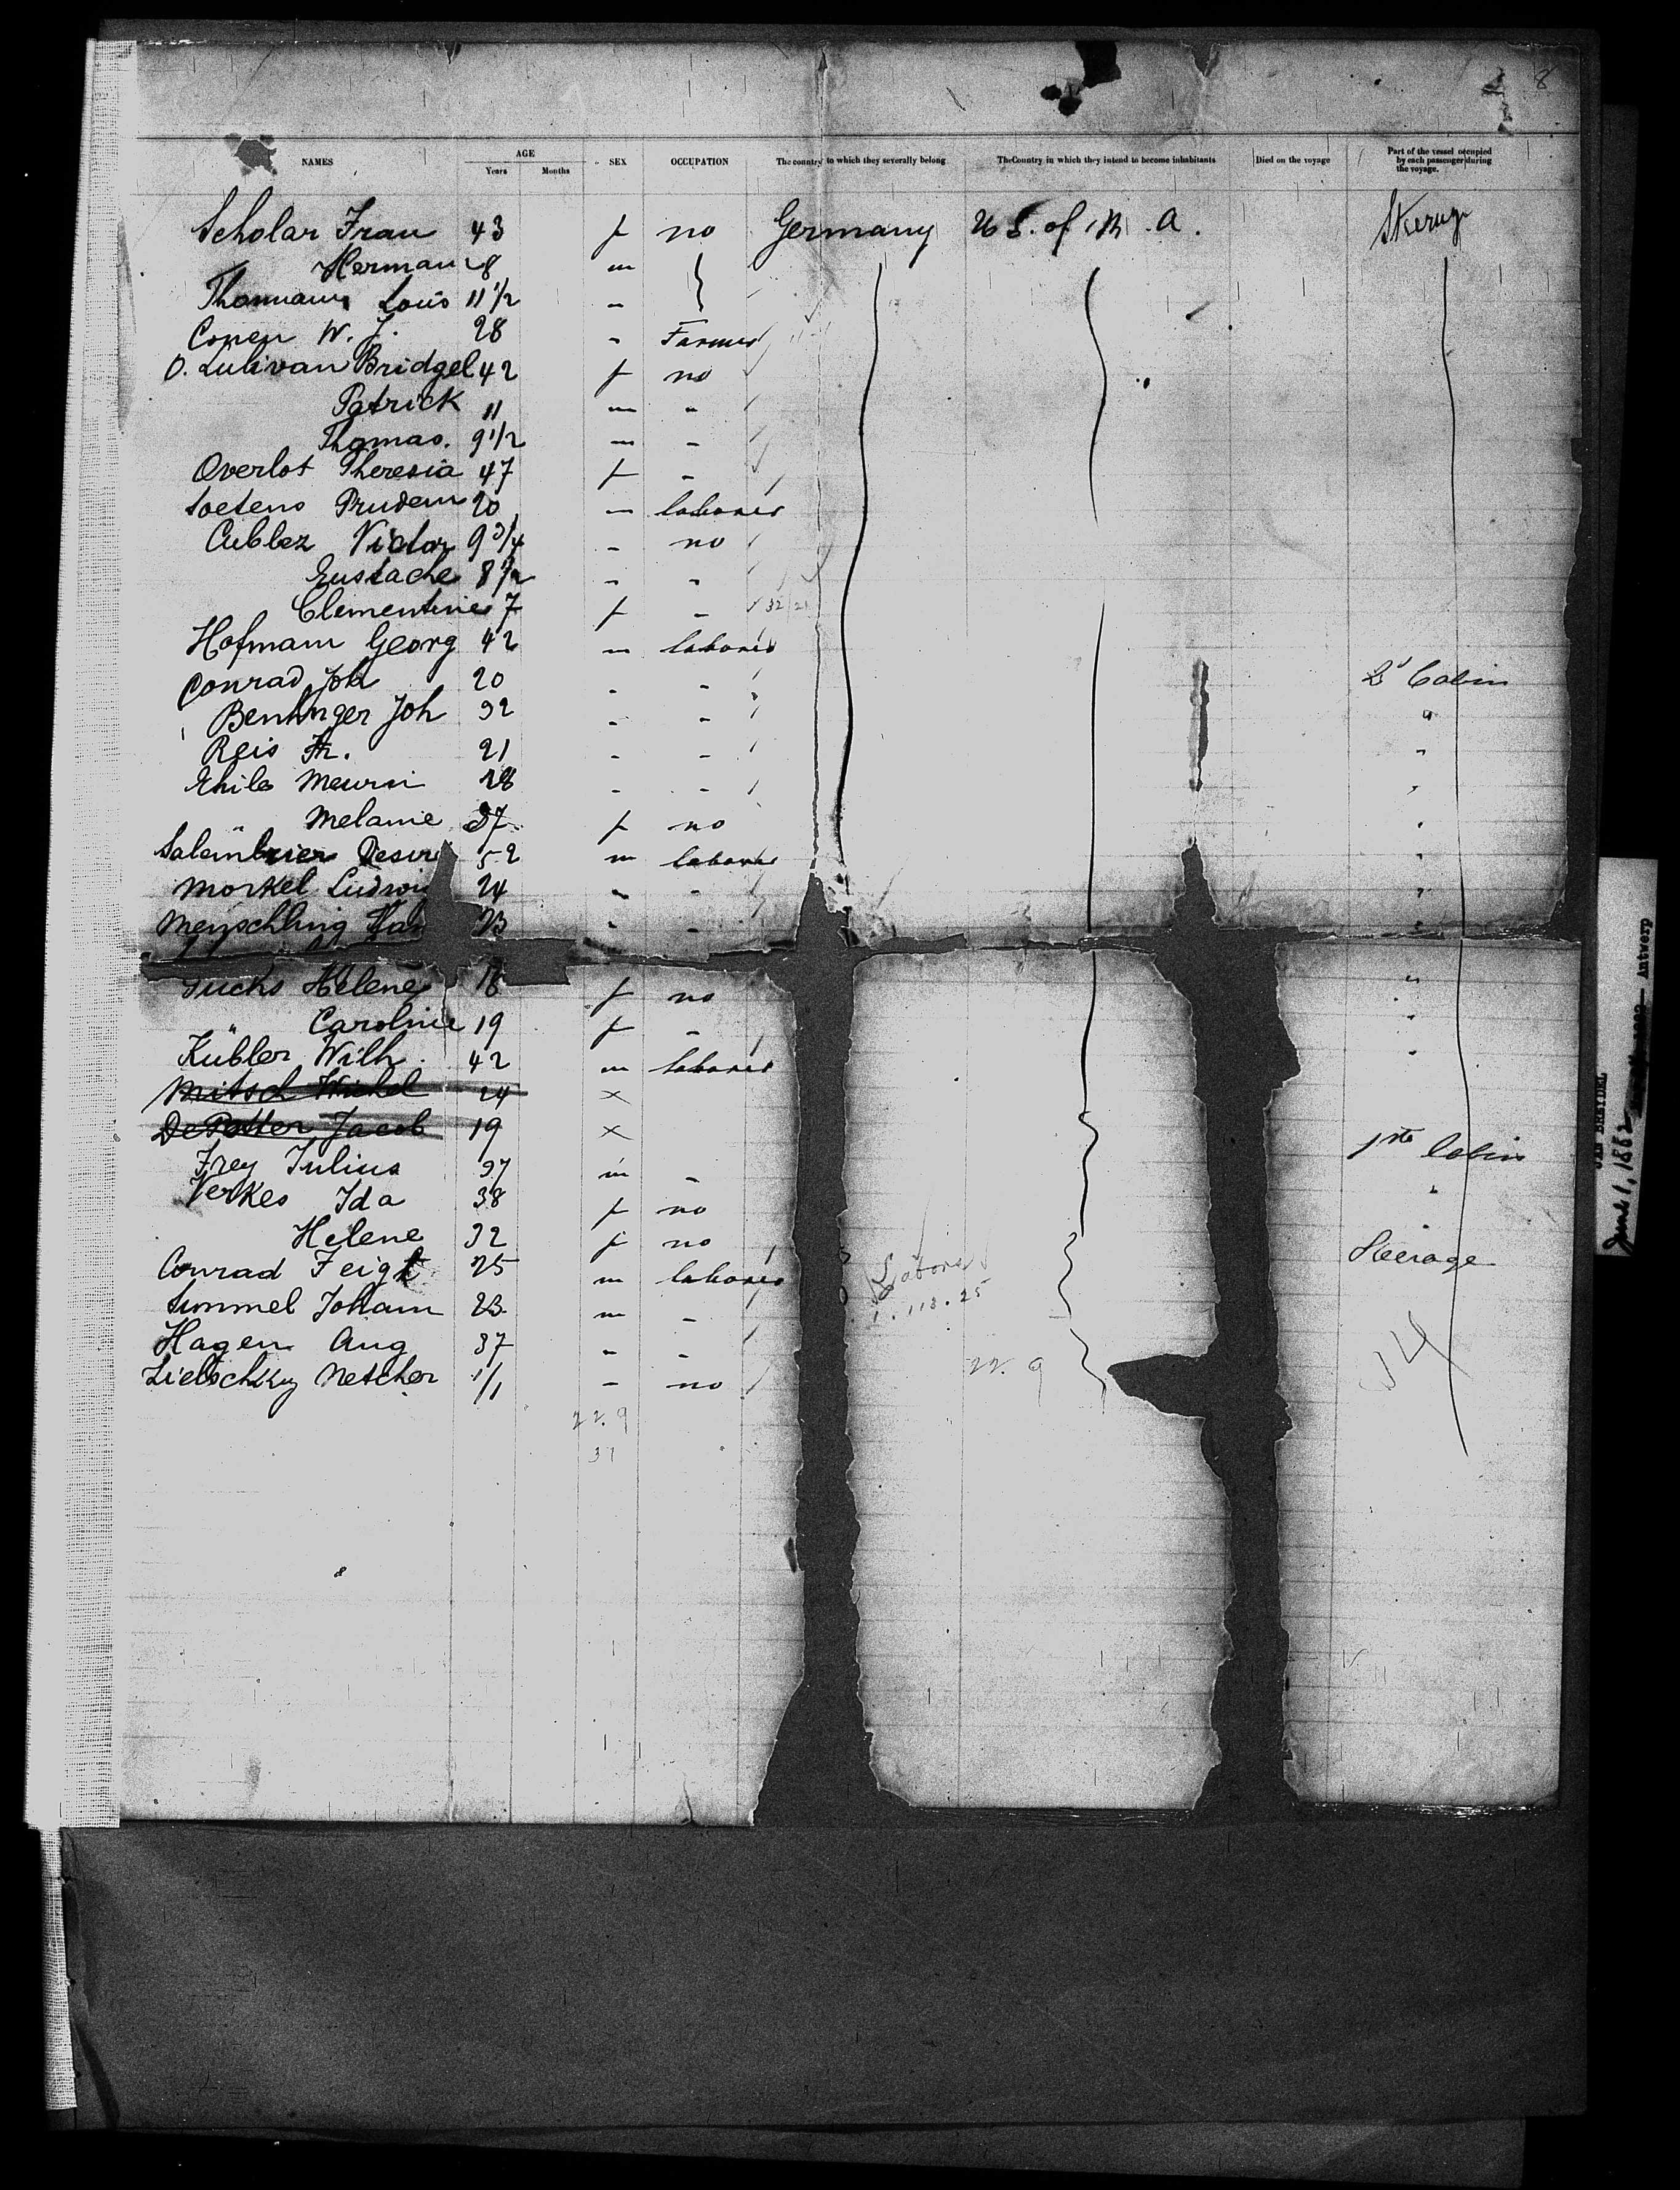 8
NAMES AGE SEX OCCUPATION The country to which they severally belong The Country in which they intend to become inhabitants Died on the voyage Part of the vessel occupied by each passenger during the voyage.
Years Months
Scholar Frau 43 f no Germany U S. of N. A.
Herman 8 m
Thomann Louis 11 1/2 "
W. J. 28 " Farmer
O. Sulivan Bridget 42 f no
Patrick 11 m "
Thomas. 9 1/2 m "
Overlot Theresia 47 f "
Soetens Pruden 20 m laborer
Cubbez Victor 9 3/4 " no
Eustache 8 1/2 " "
Clementine 7 f " 32
Hofmann Georg 42 m laborer
Conrad Joh 20 " " 2d Cabin
Beninger Joh 32 " " "
Reis Fr. 21 " " "
28 " " "
" Melanie 37 f no "
Desire 52 m laborer "
Morkel Ludwig 24 " " "
Menschling 23 " " "
Fuchs Helene 18 f no "
" Caroline 19 f " "
Kübler Wilh. 42 m laborer "
Mitsch Michel 24 x
De Potter Jacob 19 x
Frey Julius 37 m " 1ste Cabin
Yerkes Ida 38 f no "
Helene 32 f no
Conrad Feigt 25 m laborer Steerage
Johann 23 m "
113.25
Hagen Aug 37 " "
Netcher 1/1 " no 22.9
22.9
31
JAN BREYDEL
June 1, 1882
Antwerp